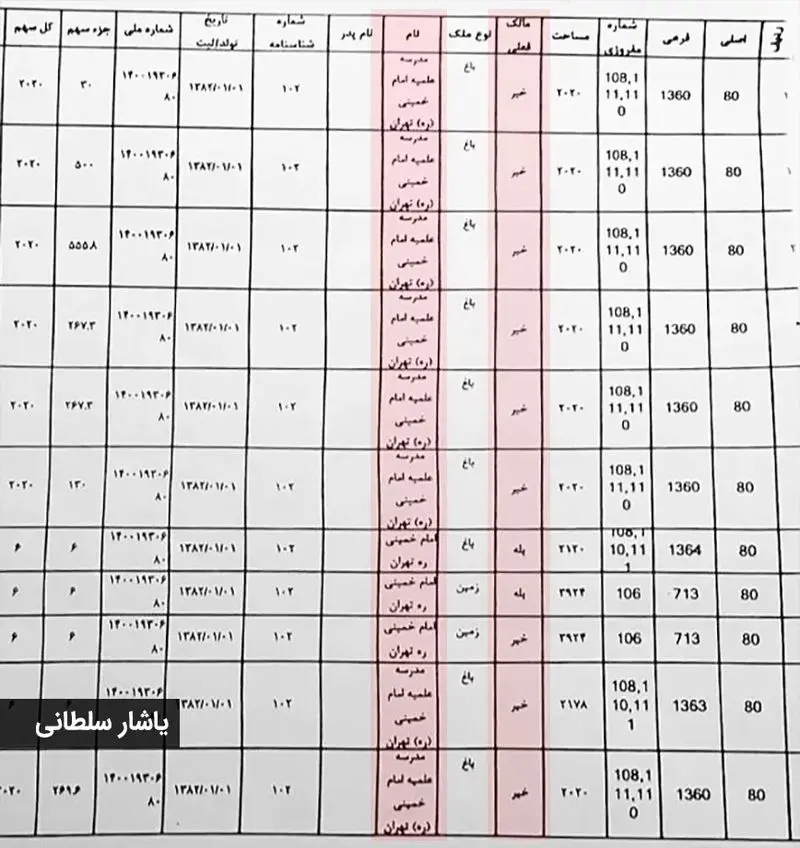 ردیف اصلی فرعی شماره مفروزی مساحت مالک فعلی نوع ملک نام نام پدر شماره شناسنامه تاریخ تولد/ثبت شماره ملی جزء سهم کل سهم
۱ 80 1360 108,111,110 ۲۰۲۰ خیر باغ مدرسه علمیه امام خمینی (ره) تهران ۱۰۲ ۱۳۸۲/۰۱/۰۱ ۱۴۰۰۱۹۳۰۶۸۰ ۳۰ ۲۰۲۰
۱ 80 1360 108,111,110 ۲۰۲۰ خیر باغ مدرسه علمیه امام خمینی (ره) تهران ۱۰۲ ۱۳۸۲/۰۱/۰۱ ۱۴۰۰۱۹۳۰۶۸۰ ۵۰۰ ۲۰۲۰
۲ 80 1360 108,111,110 ۲۰۲۰ خیر باغ مدرسه علمیه امام خمینی (ره) تهران ۱۰۲ ۱۳۸۲/۰۱/۰۱ ۱۴۰۰۱۹۳۰۶۸۰ ۵۵۵.۸ ۲۰۲۰
80 1360 108,111,110 ۲۰۲۰ خیر باغ مدرسه علمیه امام خمینی (ره) تهران ۱۰۲ ۱۳۸۲/۰۱/۰۱ ۱۴۰۰۱۹۳۰۶۸۰ ۲۶۷.۳ ۲۰۲۰
80 1360 108,111,110 ۲۰۲۰ خیر باغ مدرسه علمیه امام خمینی (ره) تهران ۱۰۲ ۱۳۸۲/۰۱/۰۱ ۱۴۰۰۱۹۳۰۶۸۰ ۲۶۷.۳ ۲۰۲۰
80 1360 108,111,110 ۲۰۲۰ خیر باغ مدرسه علمیه امام خمینی (ره) تهران ۱۰۲ ۱۳۸۲/۰۱/۰۱ ۱۴۰۰۱۹۳۰۶۸۰ ۱۳۰ ۲۰۲۰
80 1364 108,110,111 ۲۱۲۰ بله باغ امام خمینی ره تهران ۱۰۲ ۱۳۸۲/۰۱/۰۱ ۱۴۰۰۱۹۳۰۶۸۰ ۶ ۶
80 713 106 ۳۹۲۴ بله زمین امام خمینی ره تهران ۱۰۲ ۱۳۸۲/۰۱/۰۱ ۱۴۰۰۱۹۳۰۶۸۰ ۶ ۶
80 713 106 ۳۹۲۴ خیر زمین امام خمینی ره تهران ۱۰۲ ۱۳۸۲/۰۱/۰۱ ۱۴۰۰۱۹۳۰۶۸۰ ۶ ۶
80 1363 108,110,111 ۲۱۷۸ خیر باغ مدرسه علمیه امام خمینی (ره) تهران ۱۰۲ ۱۳۸۲/۰۱/۰۱ ۱۴۰۰۱۹۳۰۶
یاشار سلطانی
80 1360 108,111,110 ۲۰۲۰ خیر باغ مدرسه علمیه امام خمینی (ره) تهران ۱۰۲ ۱۳۸۲/۰۱/۰۱ ۱۴۰۰۱۹۳۰۶۸۰ ۲۶۹.۶ ۲۰۲۰